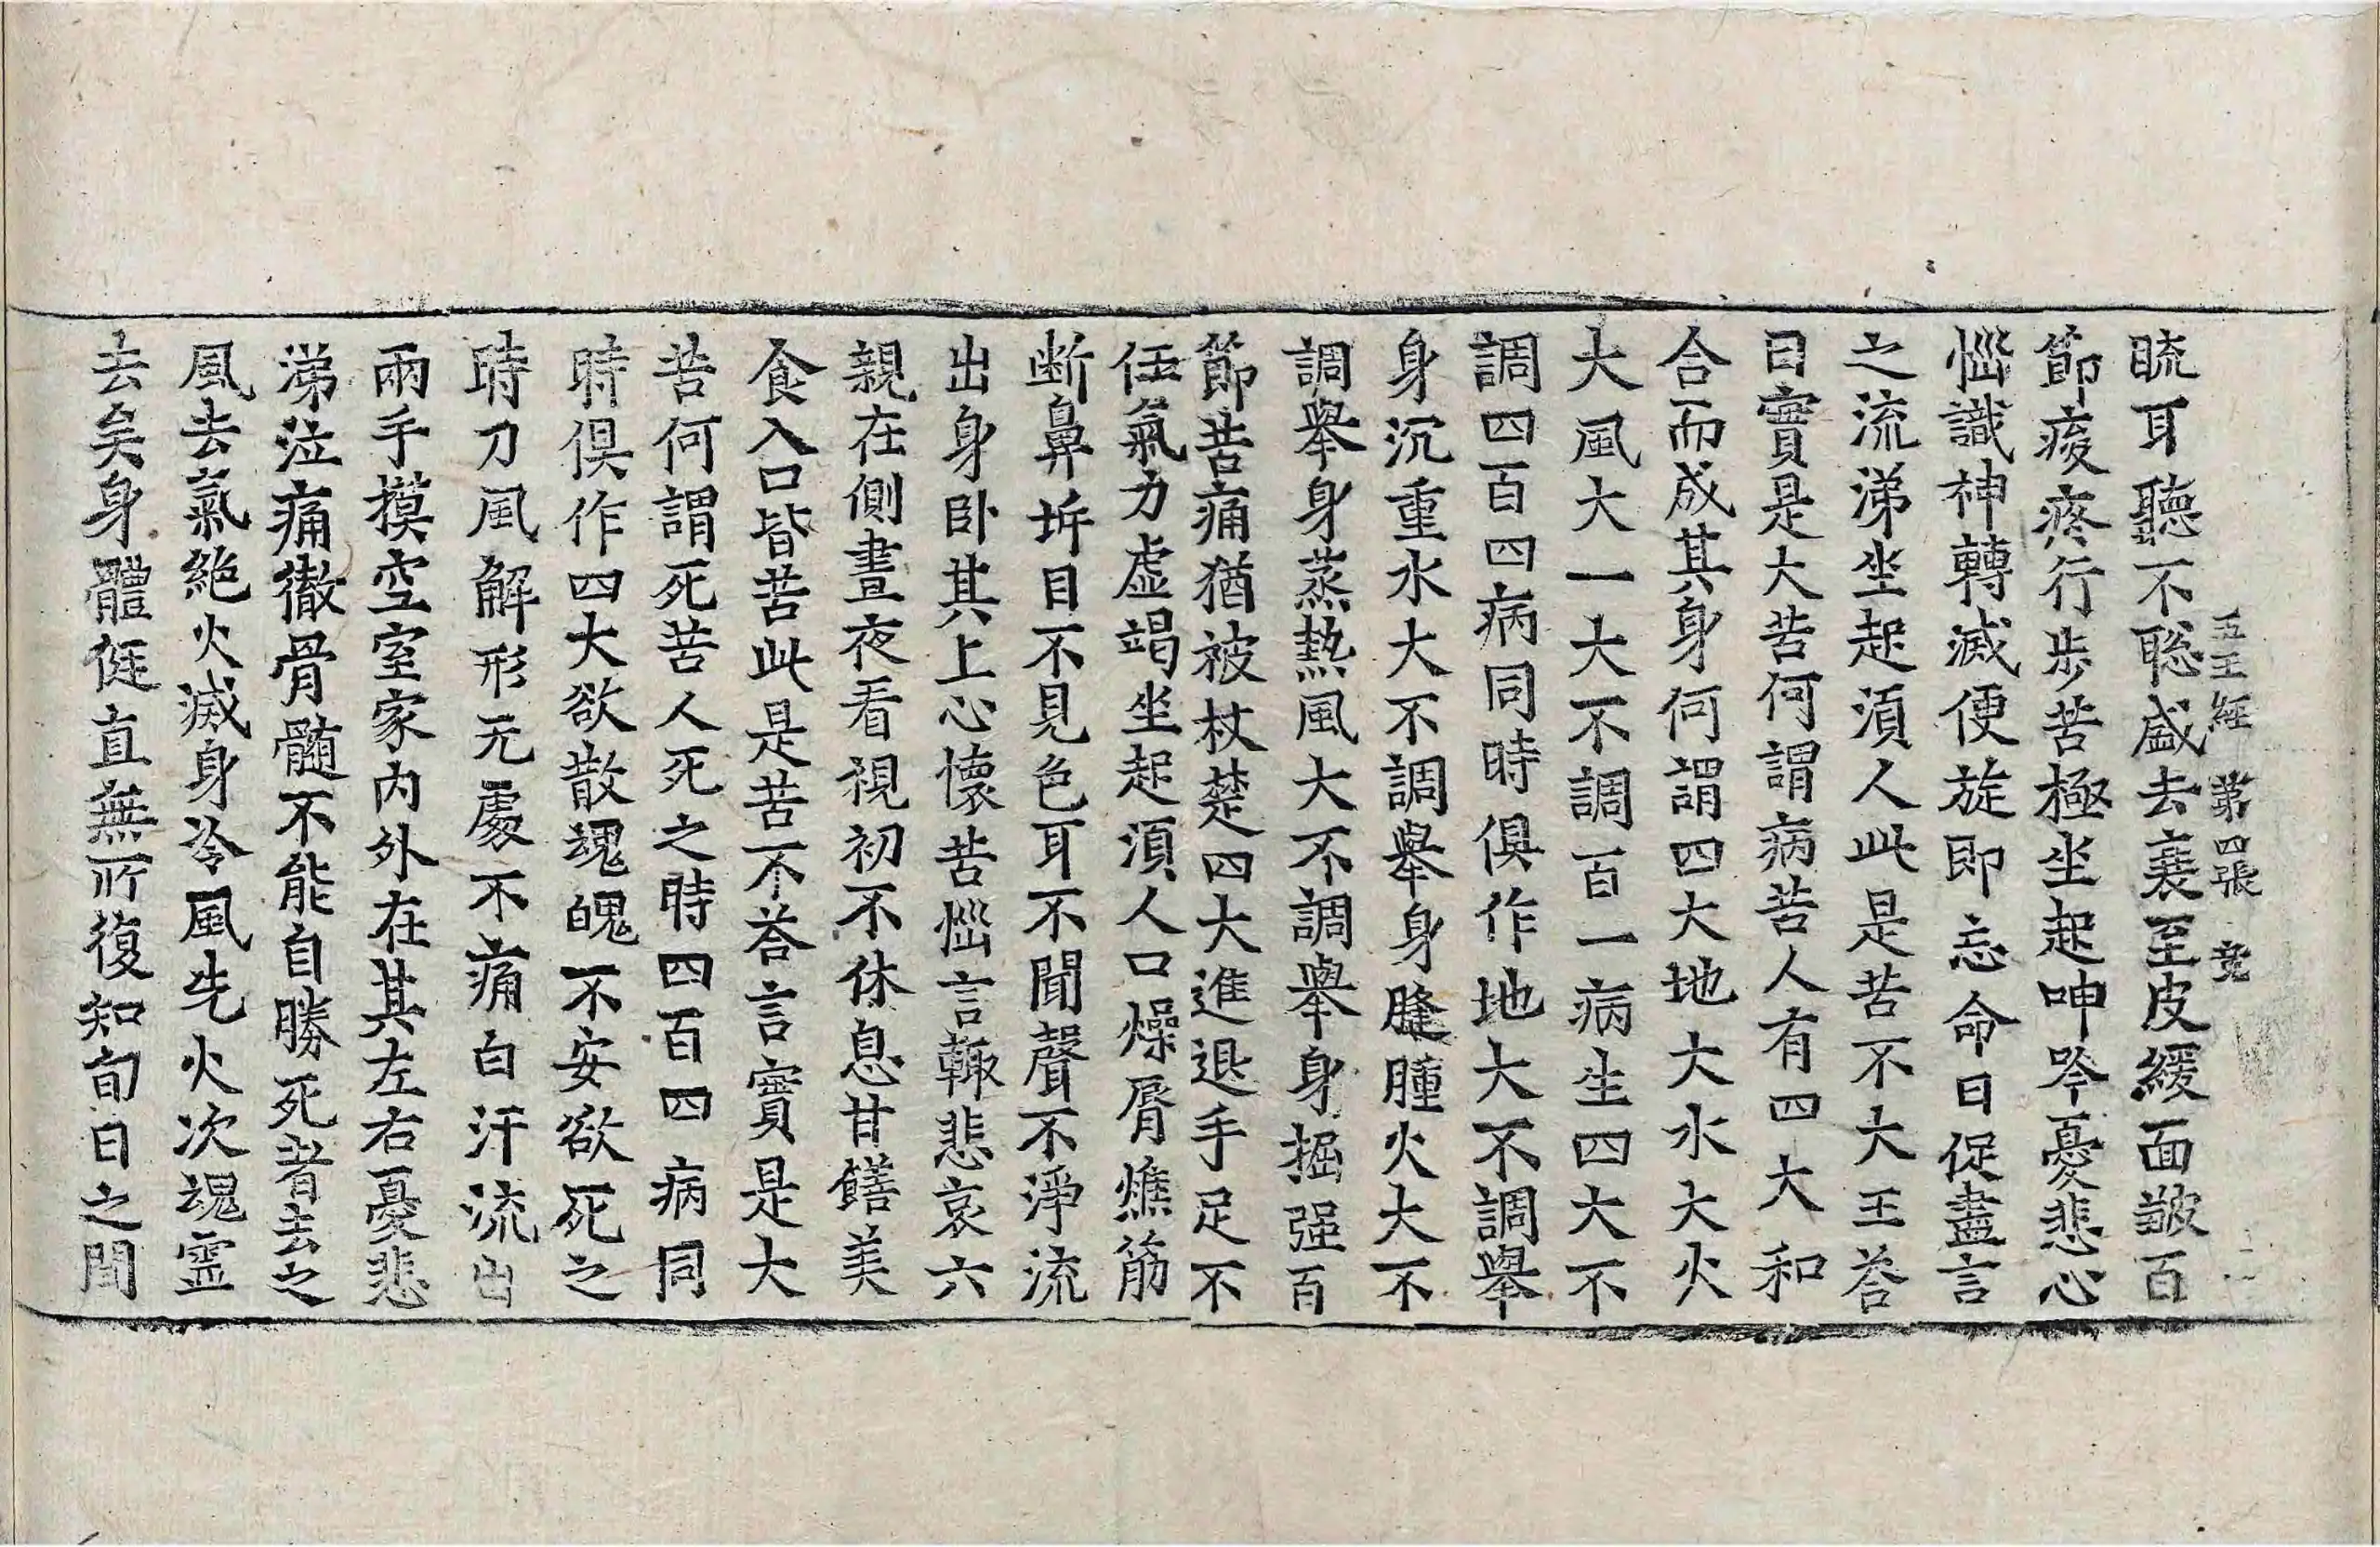 五王經 第四張
䀮耳聽不聡盛去衰至皮緩面皺百
節痠疼行步苦極坐起呻吟憂悲心
惱識神轉滅便旋即忘命日促盡言
之流涕坐起湏人此是苦不大王荅
曰實是大苦何謂病苦人有四大和
合而成其身何謂四大地大水大火
大風大一大不調百一病生四大不
調四百四病同時俱作地大不調舉
身沉重水大不調舉身膖腫火大不
調舉身蒸熱風大不調舉身掘强百
節苦痛猶被杖楚四大進退手足不
任氣力虛竭坐起湏人口燥脣燋筋
断鼻坼目不見色耳不聞聲不淨流
出身卧其上心懷苦惱言輙悲哀六
親在側晝夜看視初不休息甘饍美
食入口皆苦此是苦不荅言實是大
苦何謂死苦人死之時四百四病同
時俱作四大欲散魂魄不安欲死之
時刀風解形元處不痛白汗流出
兩手摸空室家內外在其左右憂悲
涕泣痛徹骨髓不能自勝死者去之
風去氣絕火滅身冷風先火次魂靈
去矣身體侹直無所復知旬日之間